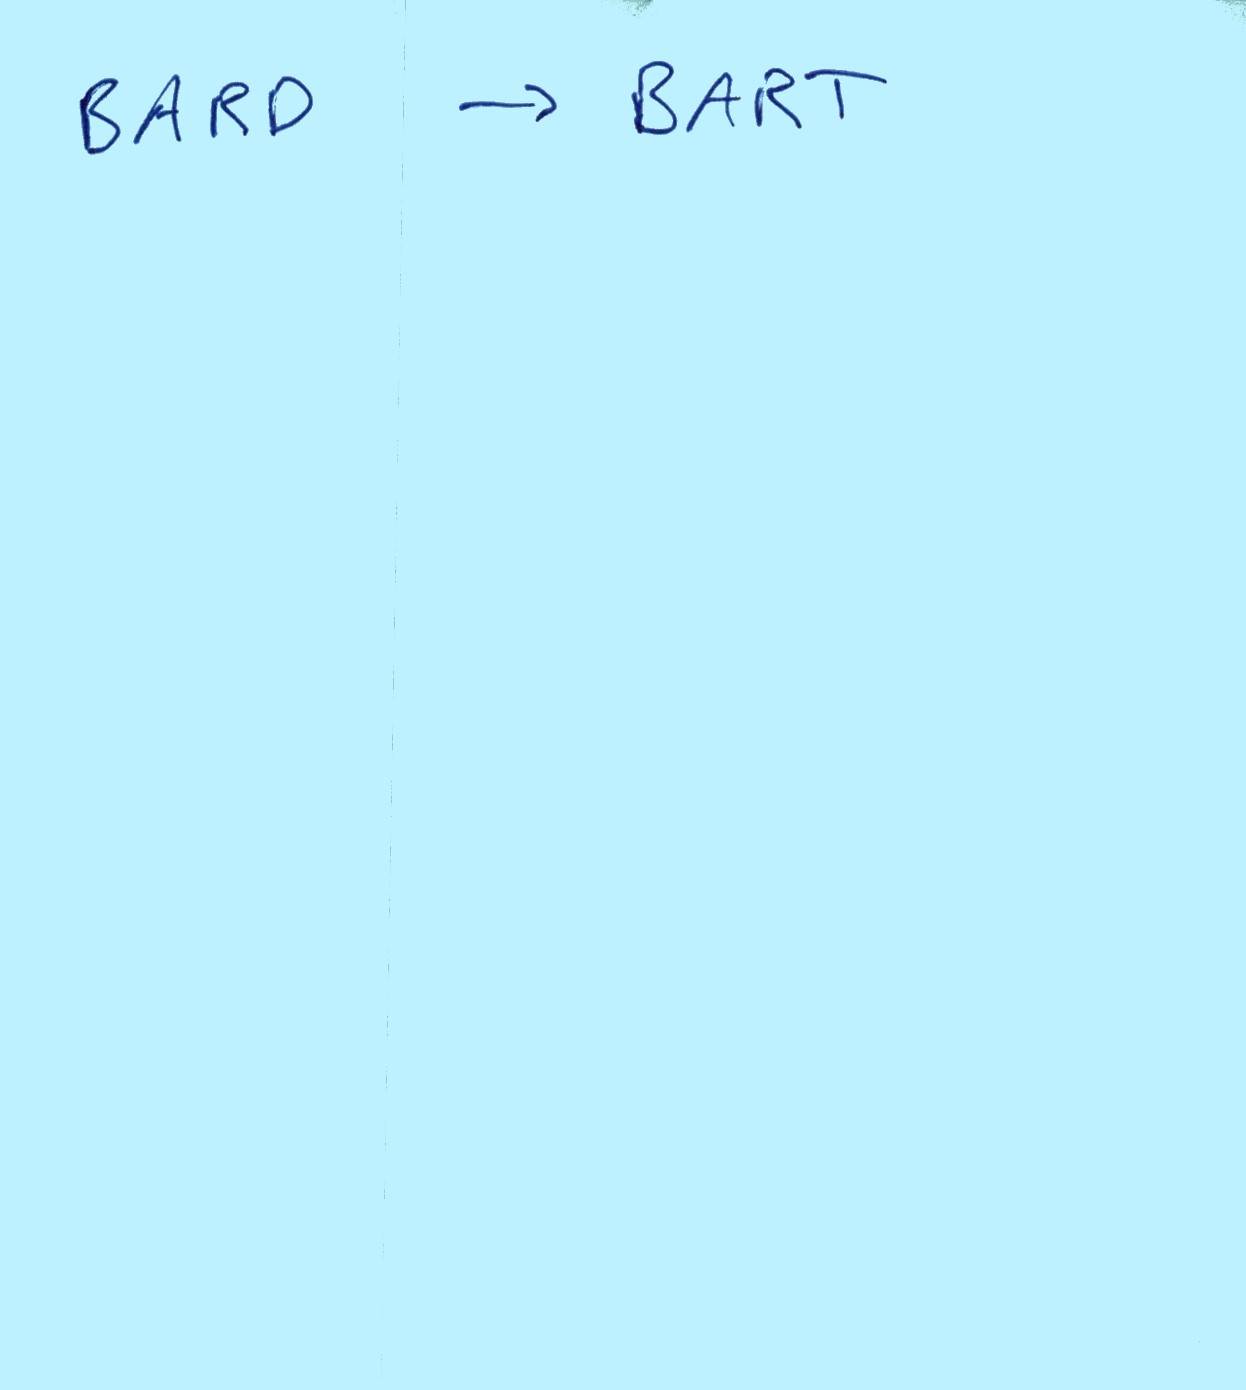 BARD → BART